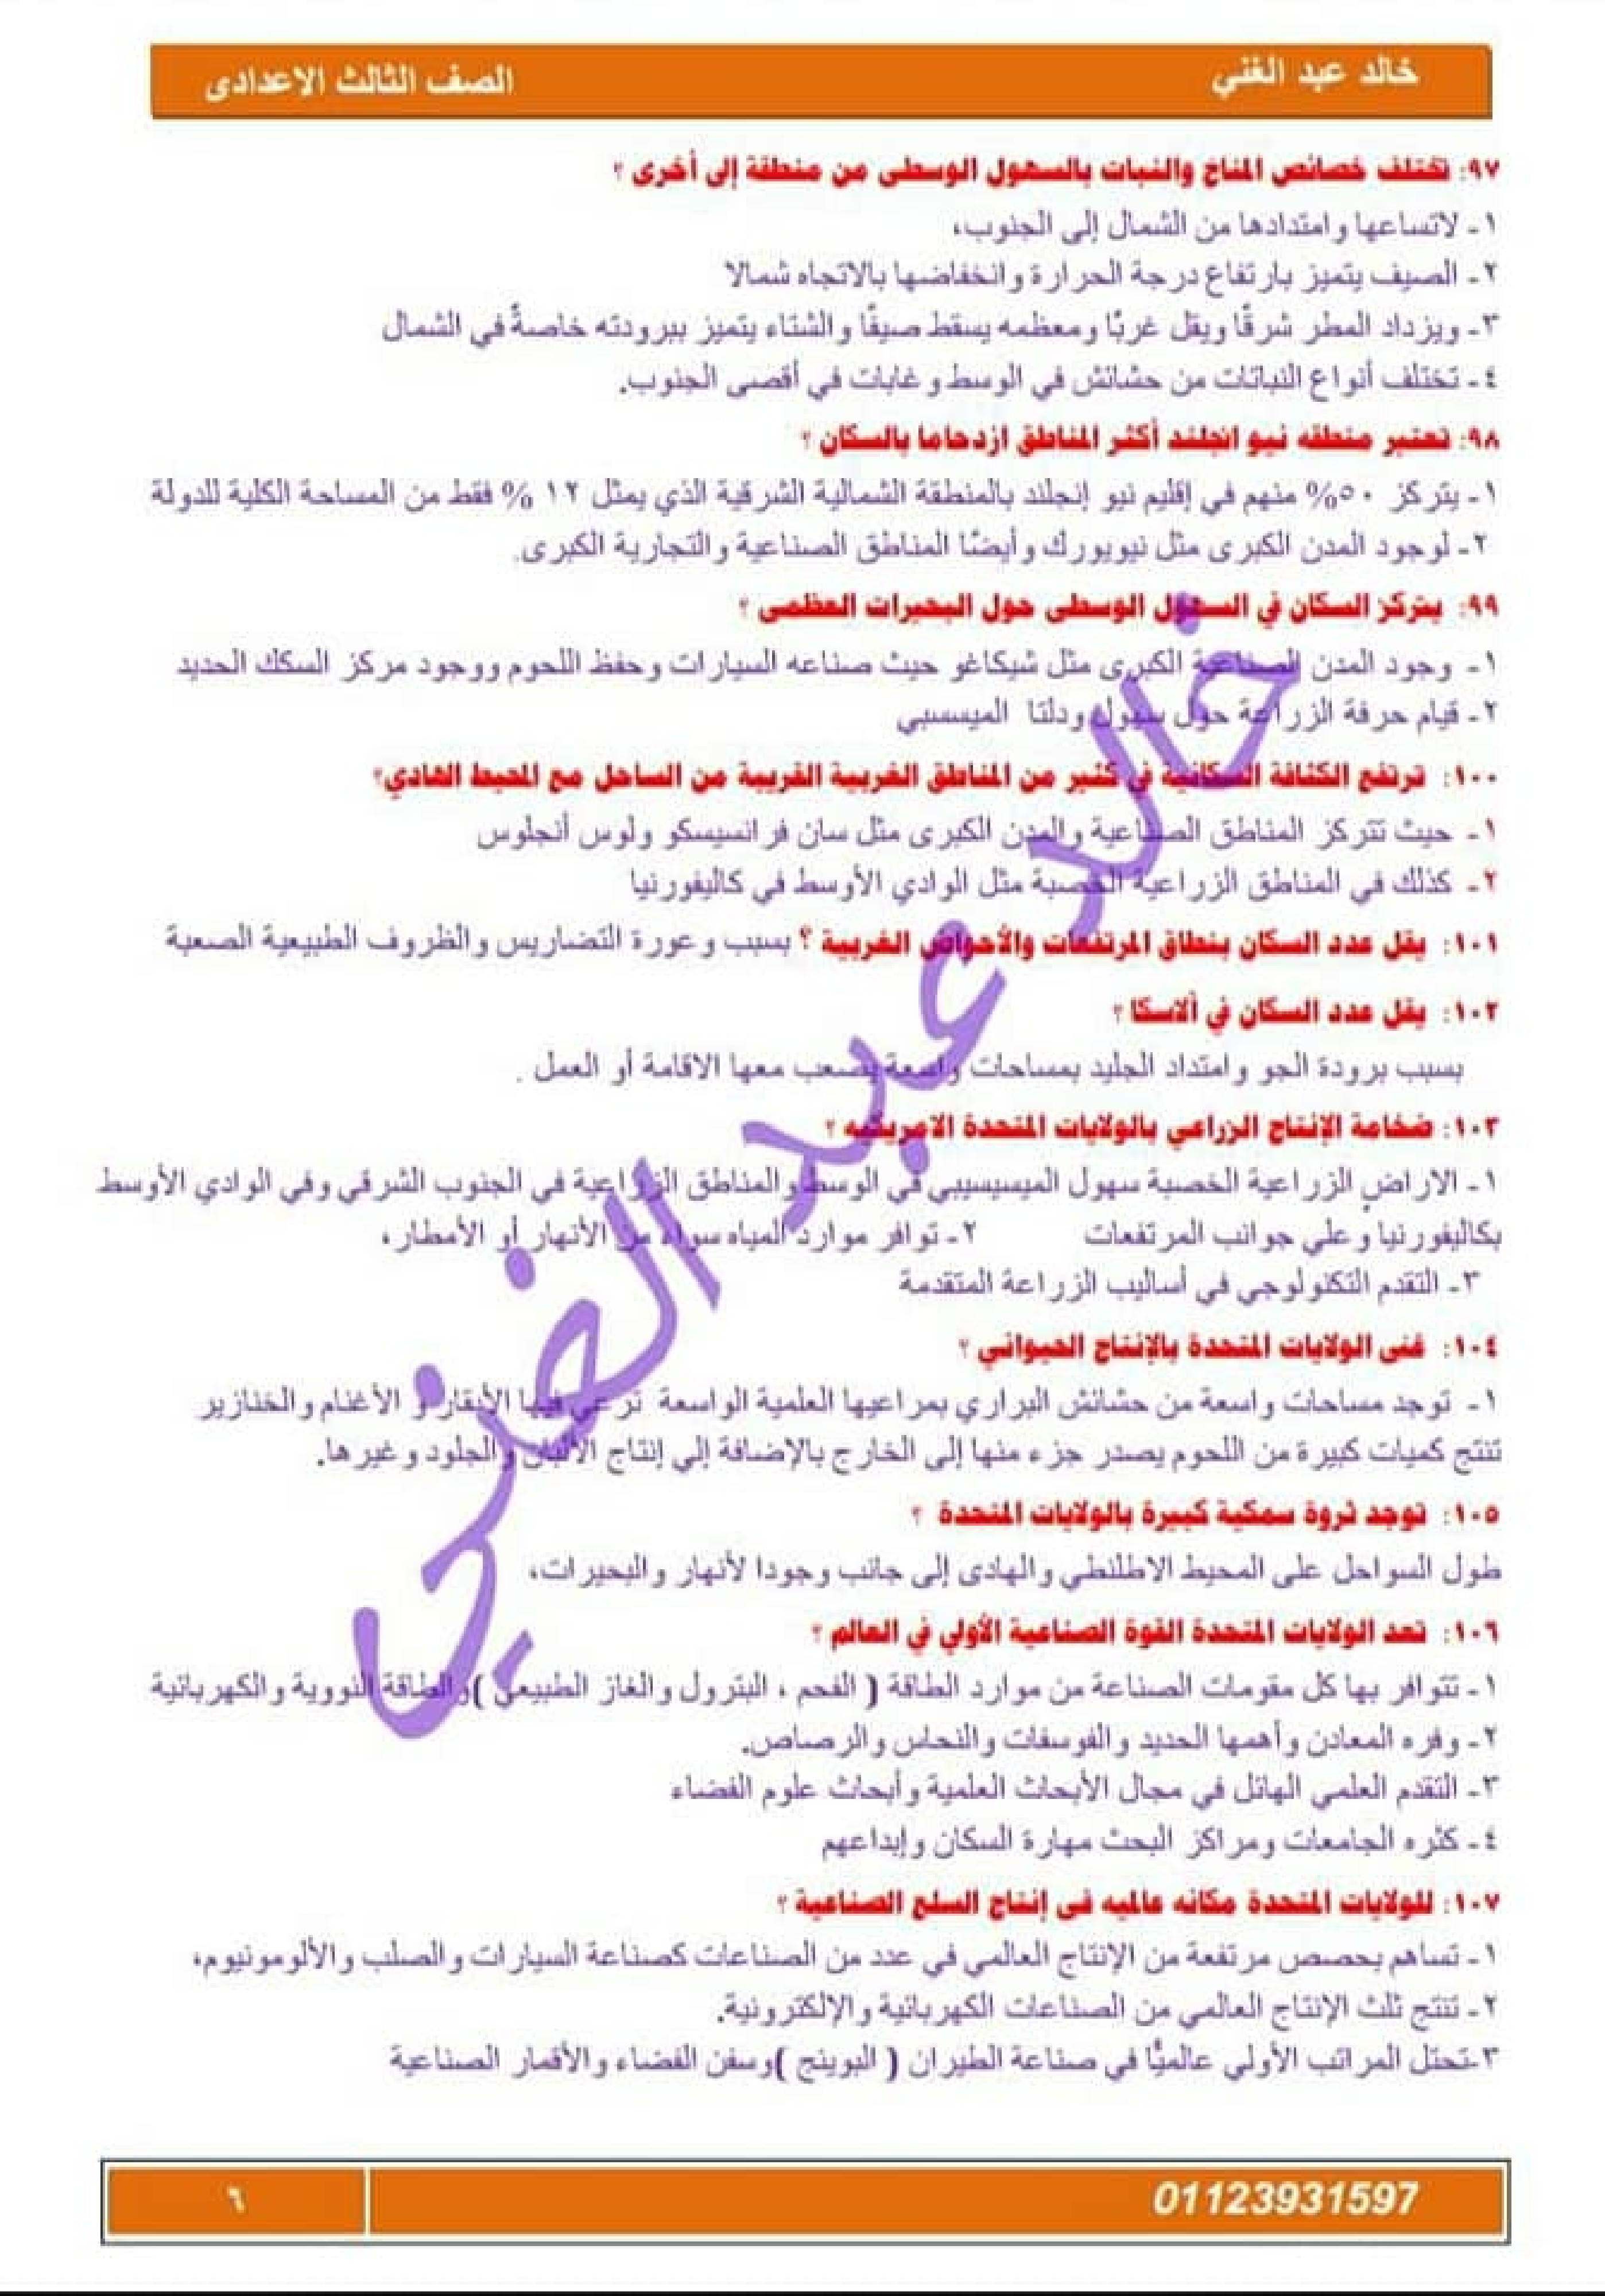 خالد عبد الغني
الصف الثالث الاعدادى
٩٧: تختلف خصائص المناخ والنبات بالسهول الوسطى من منطقة إلى أخرى ؟
١- لاتساعها وامتدادها من الشمال إلى الجنوب،
٢- الصيف يتميز بارتفاع درجة الحرارة وانخفاضها بالاتجاه شمالا
٣- ويزداد المطر شرقًا ويقل غربًا ومعظمه يسقط صيفًا والشتاء يتميز ببرودته خاصةً في الشمال
٤- تختلف أنواع النباتات من حشائش في الوسط وغابات في أقصى الجنوب.
٩٨: تعتبر منطقه نيو انجلند أكثر المناطق ازدحاما بالسكان ؟
١- يتركز ٥٠% منهم في إقليم نيو إنجلند بالمنطقة الشمالية الشرقية الذي يمثل ١٢ % فقط من المساحة الكلية للدولة
٢- لوجود المدن الكبرى مثل نيويورك وأيضًا المناطق الصناعية والتجارية الكبرى.
٩٩: يتركز السكان في السهول الوسطى حول البحيرات العظمى ؟
١- وجود المدن الصناعية الكبرى مثل شيكاغو حيث صناعه السيارات وحفظ اللحوم ووجود مركز السكك الحديد
٢- قيام حرفة الزراعة حول سهول ودلتا الميسسبي
١٠٠: ترتفع الكثافة السكانية في كثير من المناطق الغربية القريبة من الساحل مع المحيط الهادي؟
١- حيث تتركز المناطق الصناعية والمدن الكبرى مثل سان فرانسيسكو ولوس أنجلوس
٢- كذلك في المناطق الزراعية الخصبة مثل الوادي الأوسط في كاليفورنيا
١٠١: يقل عدد السكان بنطاق المرتفعات والأحواض الغربية ؟ بسبب وعورة التضاريس والظروف الطبيعية الصعبة
١٠٢: يقل عدد السكان في ألاسكا ؟
بسبب برودة الجو وامتداد الجليد بمساحات واسعة يصعب معها الاقامة أو العمل .
١٠٣: ضخامة الإنتاج الزراعي بالولايات المتحدة الامريكيه ؟
١- الاراضٍ الزراعية الخصبة سهول الميسيسيبي في الوسط والمناطق الزراعية في الجنوب الشرقي وفي الوادي الأوسط
بكاليفورنيا وعلي جوانب المرتفعات ٢- توافر موارد المياه سواء من الأنهار أو الأمطار،
٣- التقدم التكنولوجي في أساليب الزراعة المتقدمة
١٠٤: غنى الولايات المتحدة بالإنتاج الحيواني ؟
١- توجد مساحات واسعة من حشائش البراري بمراعيها العلمية الواسعة ترعي فيها الأبقار و الأغنام والخنازير
تنتج كميات كبيرة من اللحوم يصدر جزء منها إلى الخارج بالإضافة إلي إنتاج الألبان والجلود وغيرها.
١٠٥: توجد ثروة سمكية كبيرة بالولايات المتحدة ؟
طول السواحل على المحيط الاطلنطي والهادى إلى جانب وجودا لأنهار والبحيرات،
١٠٦: تعد الولايات المتحدة القوة الصناعية الأولي في العالم ؟
١- تتوافر بها كل مقومات الصناعة من موارد الطاقة ( الفحم ، البترول والغاز الطبيعي )والطاقة النووية والكهربائية
٢- وفره المعادن وأهمها الحديد والفوسفات والنحاس والرصاص.
٣- التقدم العلمي الهائل في مجال الأبحاث العلمية وأبحاث علوم الفضاء
٤- كثره الجامعات ومراكز البحث مهارة السكان وإبداعهم
١٠٧: للولايات المتحدة مكانه عالميه فى إنتاج السلع الصناعية ؟
١- تساهم بحصص مرتفعة من الإنتاج العالمي في عدد من الصناعات كصناعة السيارات والصلب والألومونيوم،
٢- تنتج ثلث الإنتاج العالمي من الصناعات الكهربائية والإلكترونية.
٣-تحتل المراتب الأولي عالميًّا في صناعة الطيران ( البوينج )وسفن الفضاء والأقمار الصناعية
خالد عبد الغني
01123931597
٦